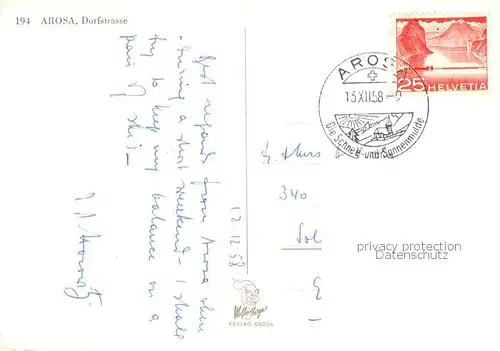 194 AROSA, Dorfstrasse
Best regards from Arosa where
during a short weekend - I shall
try to keep my balance on a
pair of skis -
12.12.58
VERLAG AROSA
AROSA
13.XII.58-
Die Schnee- und Sonnenmulde
25 HELVETIA
340
Sol
privacy protection
Datenschutz